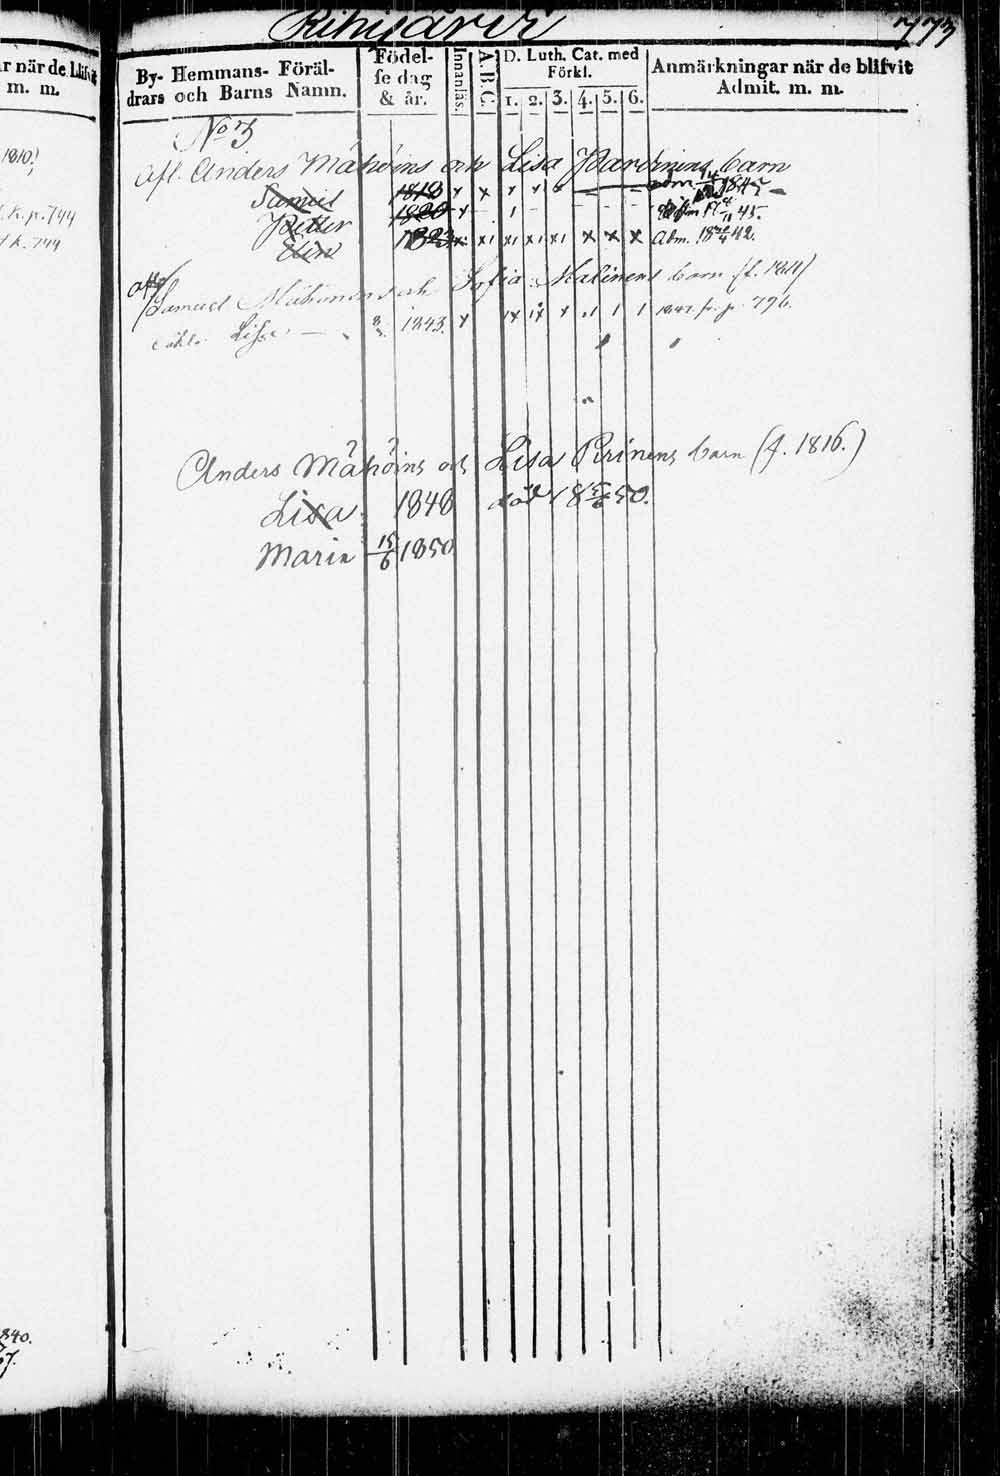 Rihijärvi 773
r när de blifvit
m. m.
By- Hemmans- Föräl-
drars och Barns Namn.
Födel-
se dag
& år.
Innanläs.
A.B.C.
D. Luth. Cat. med
Förkl.
1. 2. 3. 4. 5. 6.
Anmärkningar när de blifvit
Admit. m. m.
No 3
1810!
Afl. Anders Mähöins och Lisa barn
Samuel 1818 x x x x 1845
k. p. 744
Petter 1820 x 1 45.
k. 744
Elin 1823 x x1 x1 x1 x1 x x x Adm. 18 42.
Samuel Mähönens och Sofia Malinens barn (f. 1811)
Lisa 1843. x 1x 1x x 1 1 1 1847. fr. p. 796.
Anders Mähöins och Lisa Pirinens barn (f. 1816.)
Lisa 1848 död 18 5/6 50.
Maria 15/6 1850
840.